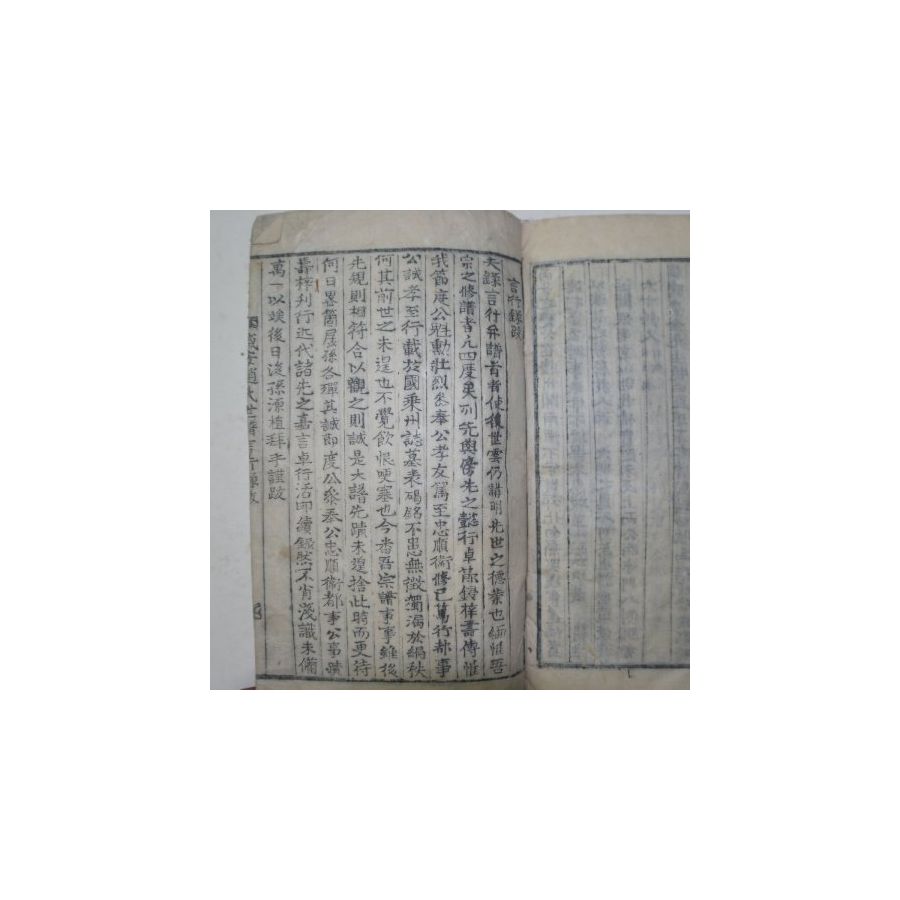 言行錄跋
夫錄言行弁譜首者使後世雲仍講明先世之德業也緬惟吾
宗之修譜者凡四度矣列先與傍先之懿行卓節鋟梓壽傳惟
我節度公甡勳壯烈參奉公孝友篤至忠順衛修己篤行都事
公誠孝至行載於國乘州誌墓表碣銘不患無徵獨漏於編秩
何其前世之未遑也不覺飲恨哽塞也今番吾宗譜事事雖後
先規則相符合以觀之則誠是大譜先蹟未遑捨此時而更待
何日畧箇孱孫各殫其誠即度公參奉公忠順衛都事公事蹟
壽梓刋行近代諸先之嘉言卓行活印續錄然不肖淺識未備
萬一以竢後日後孫源植拜手謹跋
咸安趙氏世譜言行錄跋